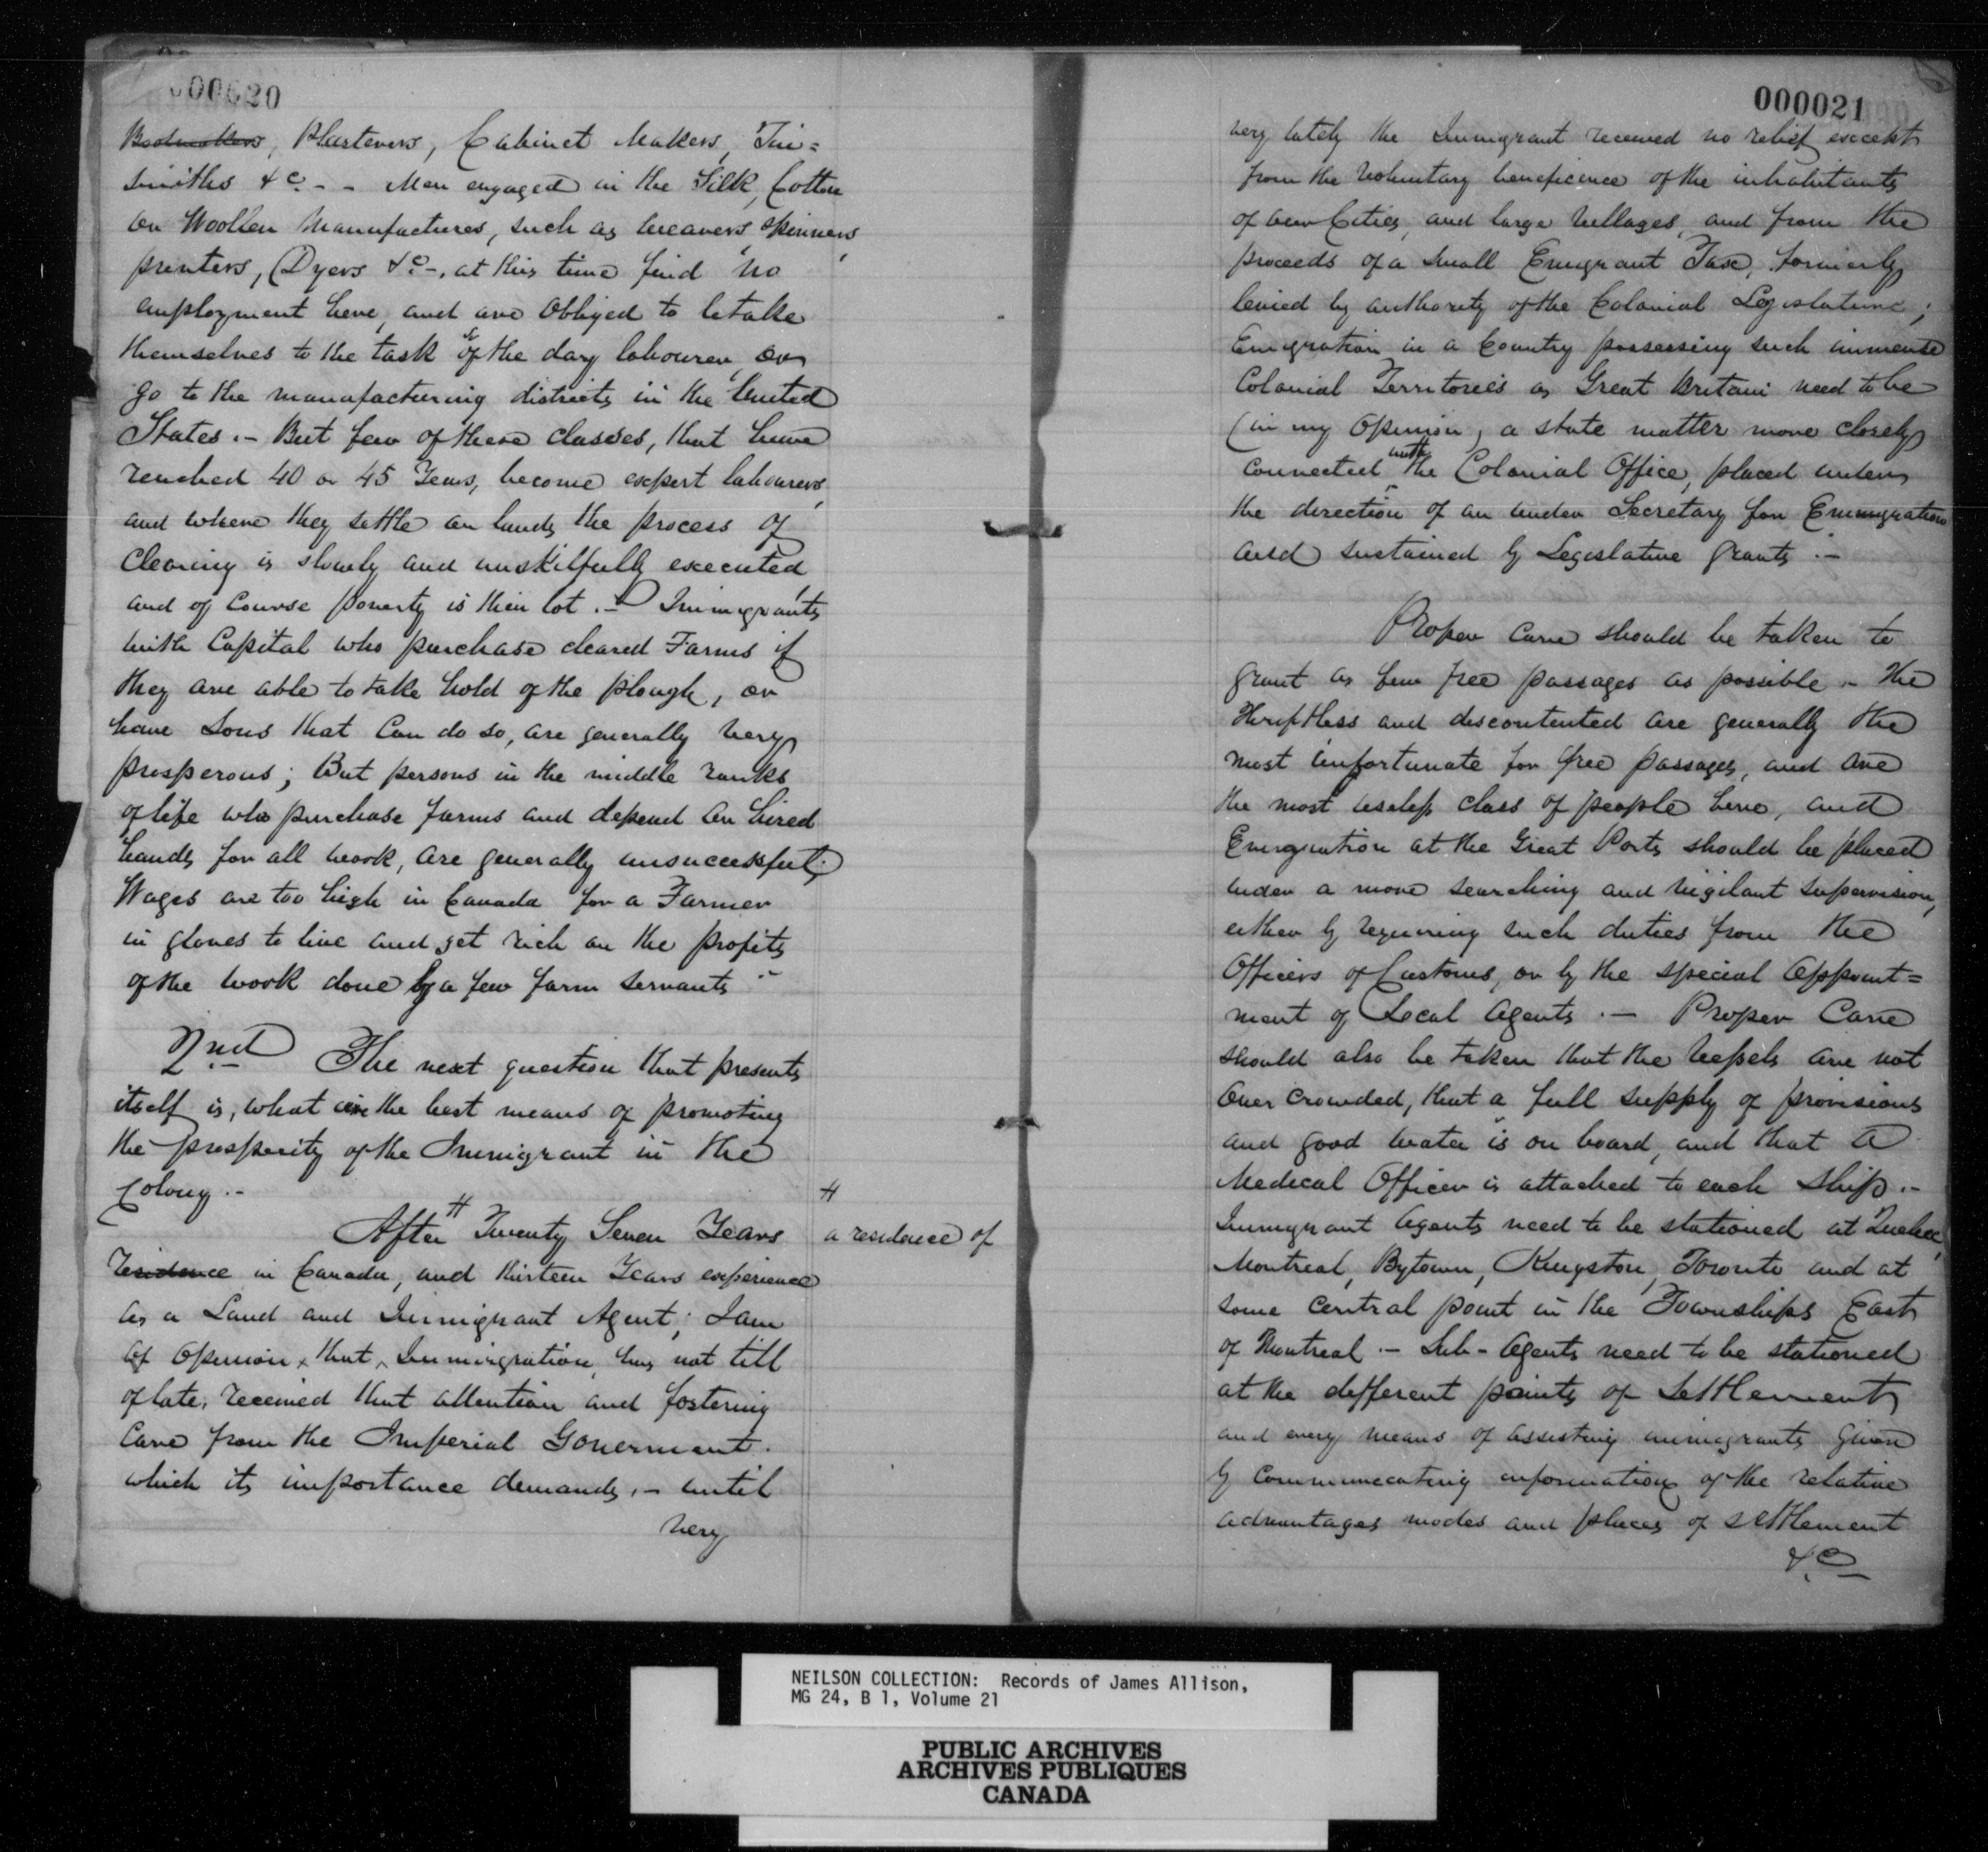 000020
Bootmakers, Plasterers, Cabinet Makers, Tin=
smiths &c. - - Men engaged in the Silk, Cotton
or Woollen Manufactures, such as weavers, spinners,
printers, Dyers &c -, at this time find no
employment here, and are obliged to betake
themselves to the task of the day labourer, or
go to the manufacturing districts in the United
States. - But few of these classes, that have
reached 40 or 45 Years, become expert labourers,
and where they settle on lands the process of
Clearing is slowly and unskilfully executed,
and of course poverty is their lot. - Immigrants
with Capital who purchase cleared Farms if
they are able to take hold of the plough, or
have Sons that Can do so, are generally very
prosperous; But persons in the middle ranks
of life who purchase farms and depend on hired
hands for all work, are generally unsuccessful;
Wages are too high in Canada for a Farmer
in gloves to live and get rich on the profits
of the work done by a few farm servants -
2nd The next question that presents
itself is, what are the best means of promoting
the prosperity of the Immigrant in the
Colony. -
After # Twenty Seven Years
# a residence of
residence in Canada, and thirteen Years experience
as a Land and Immigrant Agent; I am
of Opinion, that, Immigration, has not till
of late, received that attention and fostering
Care from the Imperial Goverment.
which its importance demands. - until
very
000021
very lately the Immigrant received no relief except
from the voluntary beneficence of the inhabitants
of our Cities, and large villages, and from the
proceeds of a small Emigrant Tax, formerly
levied by authority of the Colonial Legislature;
Emigration in a Country possessing such immense
Colonial Territories as Great Britain need to be
(in my Opinion, a state matter more closely
connected with the Colonial Office, placed under
the direction of an under Secretary for Emmigration
and sustained by Legislative grants. -
Proper Care should be taken to
grant as few free passages as possible - The
Thriftless and discontented are generally the
most unfortunate for free passages, and are
the most useless class of people here, and
Emigration at the Great Ports should be placed
under a more searching and vigilant supervision,
either by requiring such duties from the
Officers of Customs, or by the special Appoint=
ment of Local Agents. - Proper Care
should also be taken that the Vessels are not
over crowded, that a full supply of provisions
and good water is on board, and that a
Medical Officer is attached to each Ship. -
Immigrant Agents need to be stationed at Quebec,
Montreal, Bytown, Kingston, Toronto and at
some central point in the Townships East
of Montreal - Sub-Agents need to be stationed
at the different points of Settlement
and every means of assisting immigrants given
by communicating information of the relative
advantages modes and places of settlement
&c
NEILSON COLLECTION: Records of James Allison,
MG 24, B 1, Volume 21
PUBLIC ARCHIVES
ARCHIVES PUBLIQUES
CANADA